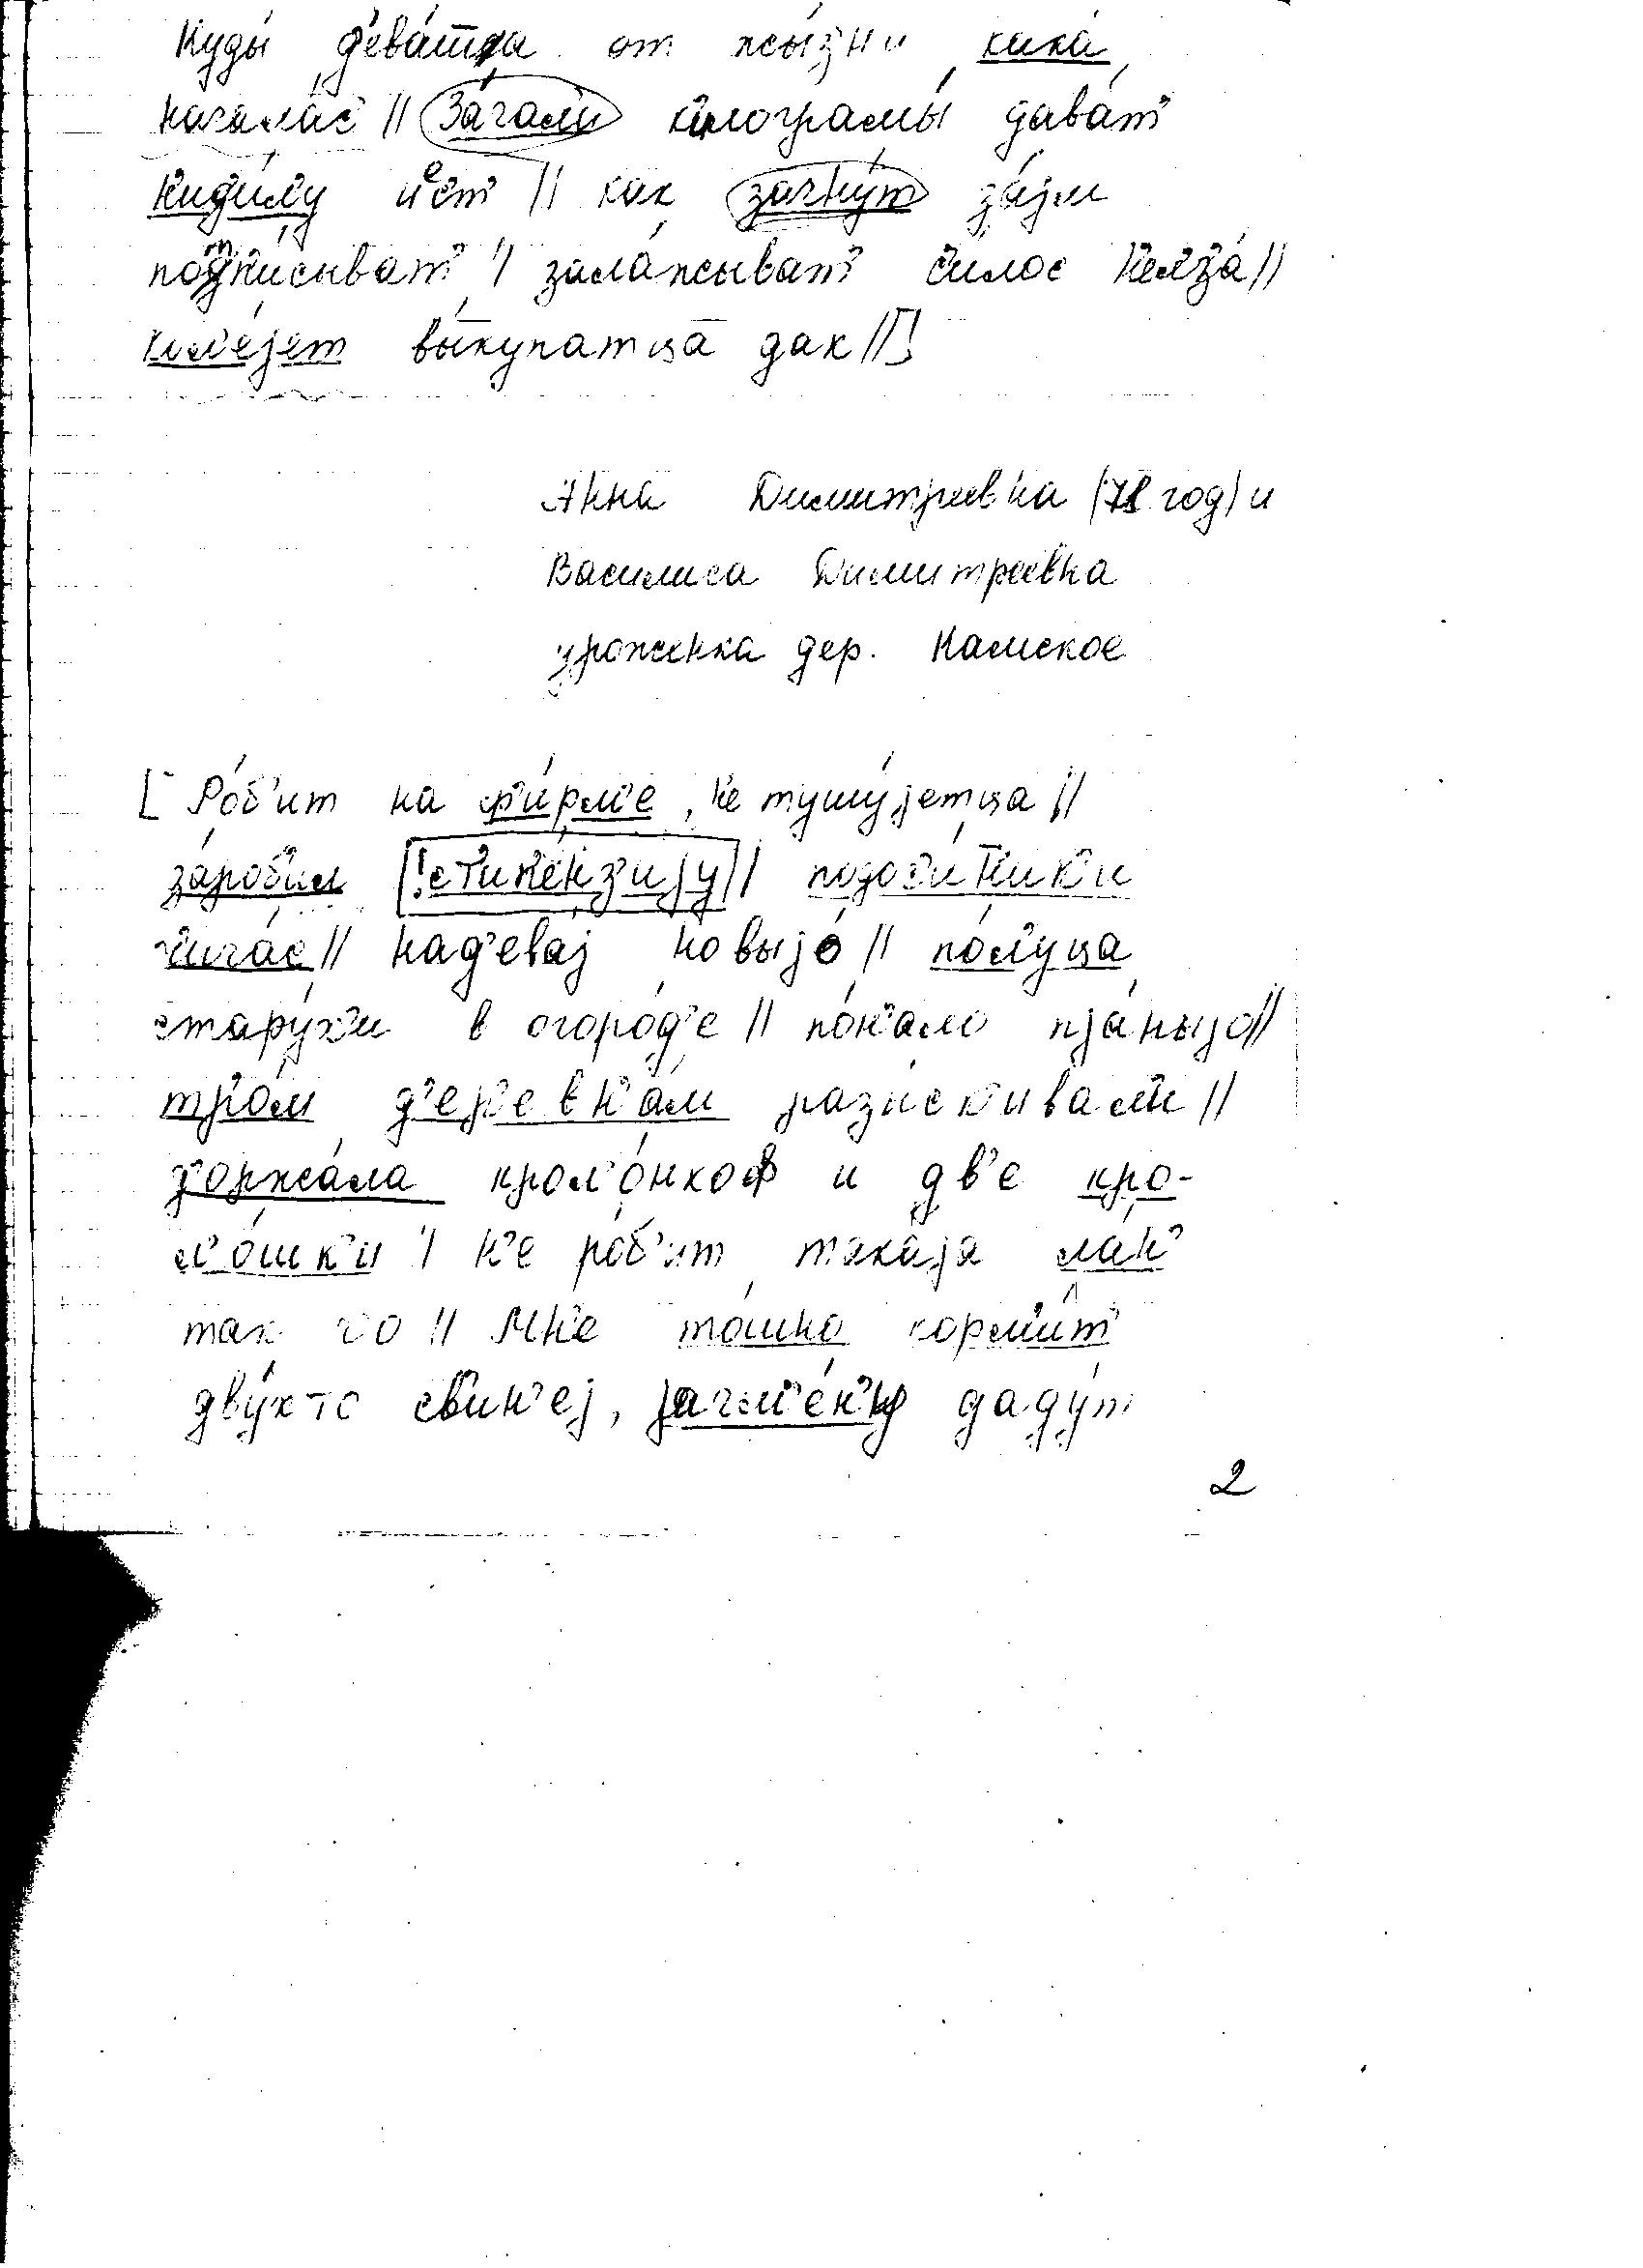 Куды́ д'ева́тца от жы́з'н'и кака́
начала́с' || За́чали килограмы́ дава́т'
кид'и́лу н'ет || как зачну́т за́јм
потп'и́сыват' | зала́жыват' с'илос н'ел'з'а́ ||
выкупатца дак || ]
Анна Димитриевна (78 год) и
Василиса Димитреевна
уроженка дер. Камское
[ Ро́б'ит на ф'и́рм'е, н'е тушу́јетца ||
за́роб'ил [!ст'ип'е́нз'ију] |
с'ича́с || над'евај новыјо́ || по́л'уца
стару́х'и в огоро́д'е || по́н'ало п'јаныјо ||
тром д'ер'евн'а́м разыск'ивал'и ||
д'оржа́ла крол'о́нкоф и дв'е кро-
л'о́шк'и | н'е ро́б'ит така́ја
так чо || Мн'е то́шно корм'и́т'
дву́х-то св'ин'е́ј, јачм'е́н'у даду́т
2